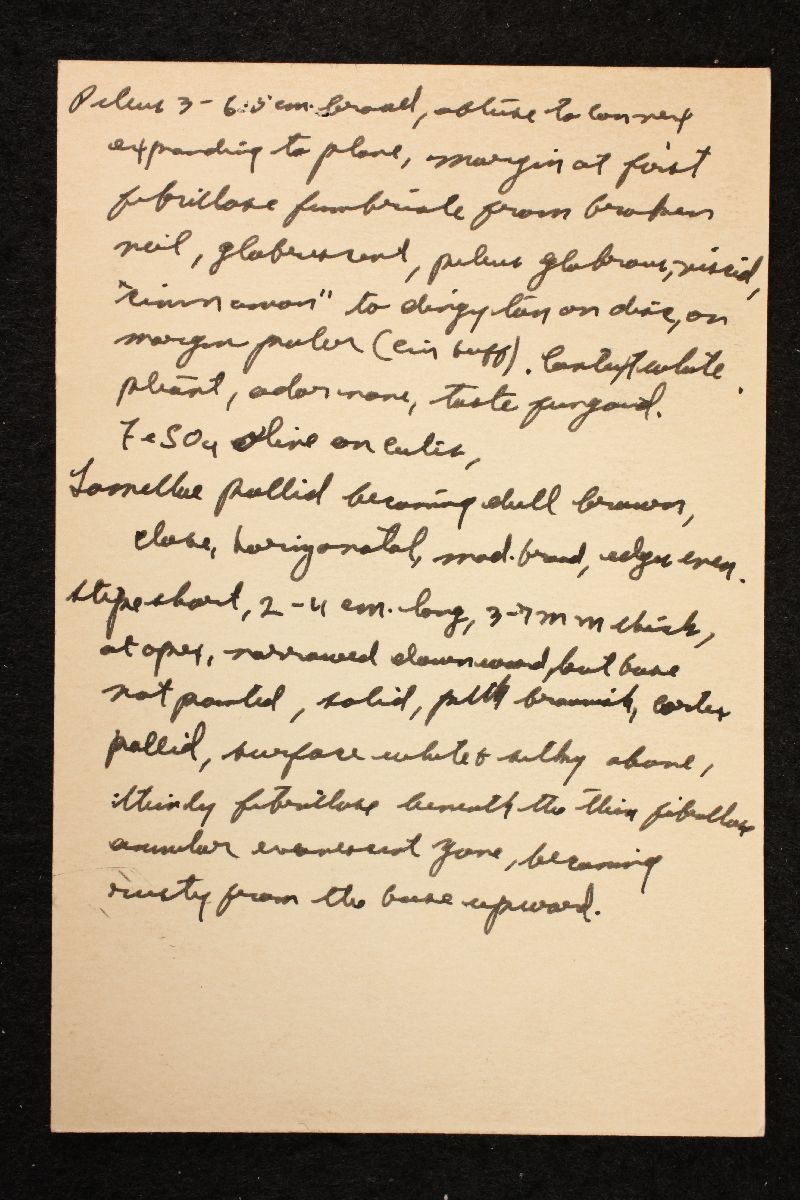 Pileus 3-6.5 cm. broad, obtuse to convex
expanding to plane, margin at first
fibrillose fimbriate from broken
veil, glabrescent, pileus glabrous, viscid,
"cinnamon" to dingy tan on disc, on
margin paler (cin buff). Context white
pliant, odor none, taste fungoid.
FeSO4 olive on cutis,
Lamellae pallid becoming dull brown,
close, horizonatal, mod. broad, edges even.
Stipe short, 2-4 cm. long, 3-7 mm thick,
at apex, narrowed downward, but base
not pointed, solid, pith brownish, cortex
pallid, surface white & silky above,
thinly fibrillose beneath the thin fibrillose
annular evanescent zone, becoming
rusty from the base upward.